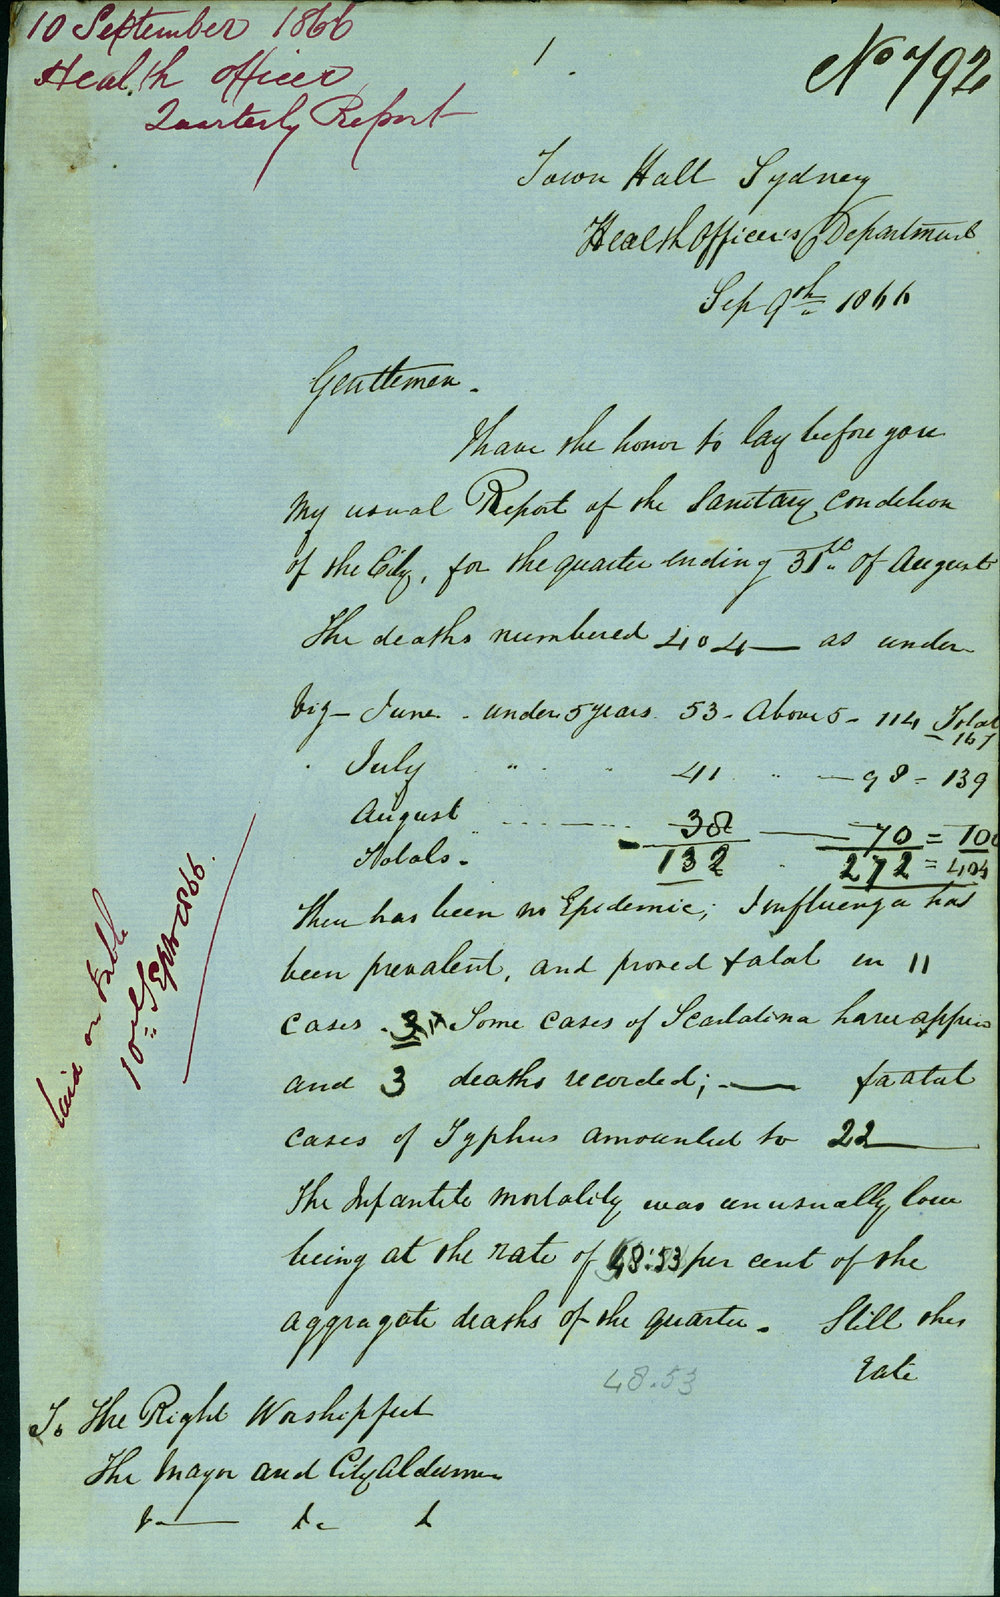 10 September 1866
Health Officer
Quarterly Report
1.
No 792
Town Hall Sydney
Health Officer's Department
Sep 9th 1866
Gentlemen.
I have the honor to lay before you
My usual Report of the Sanitary condition
of the City, for the quarter ending 31st of August
The deaths numbered 404 — as under
Viz — June - under 5 years 53 - Above 5 - 114 Total
— 167
July " " " 41 " — 98 = 139
August 38 — 70 = 108
Totals - 132 272 = 404
There has been no Epidemic; Influenza has
been prevalent, and proved fatal in 11
cases. Some cases of Scarlatina have
and 3 deaths recorded; — faatal
cases of Typhus amounted to 22 —
The Infantile mortality was unusually low
being at the rate of 48.53 per cent of the
aggragate deaths of the quarter. Still this
rate
48.53
To The Right Worshipful
The Mayor and City Aldermen
laid on table
10th Septr 1866.